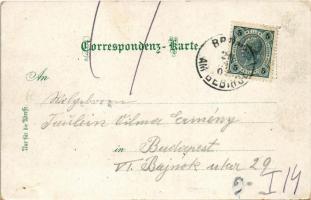 Correspondenz-Karte
An
Wolgeboren
Fräulein Vilma Ermény
in Budapest
VI. Bajnok utca 29
I/14
Nur für die Adresse
AM GEBIRGE
5 5